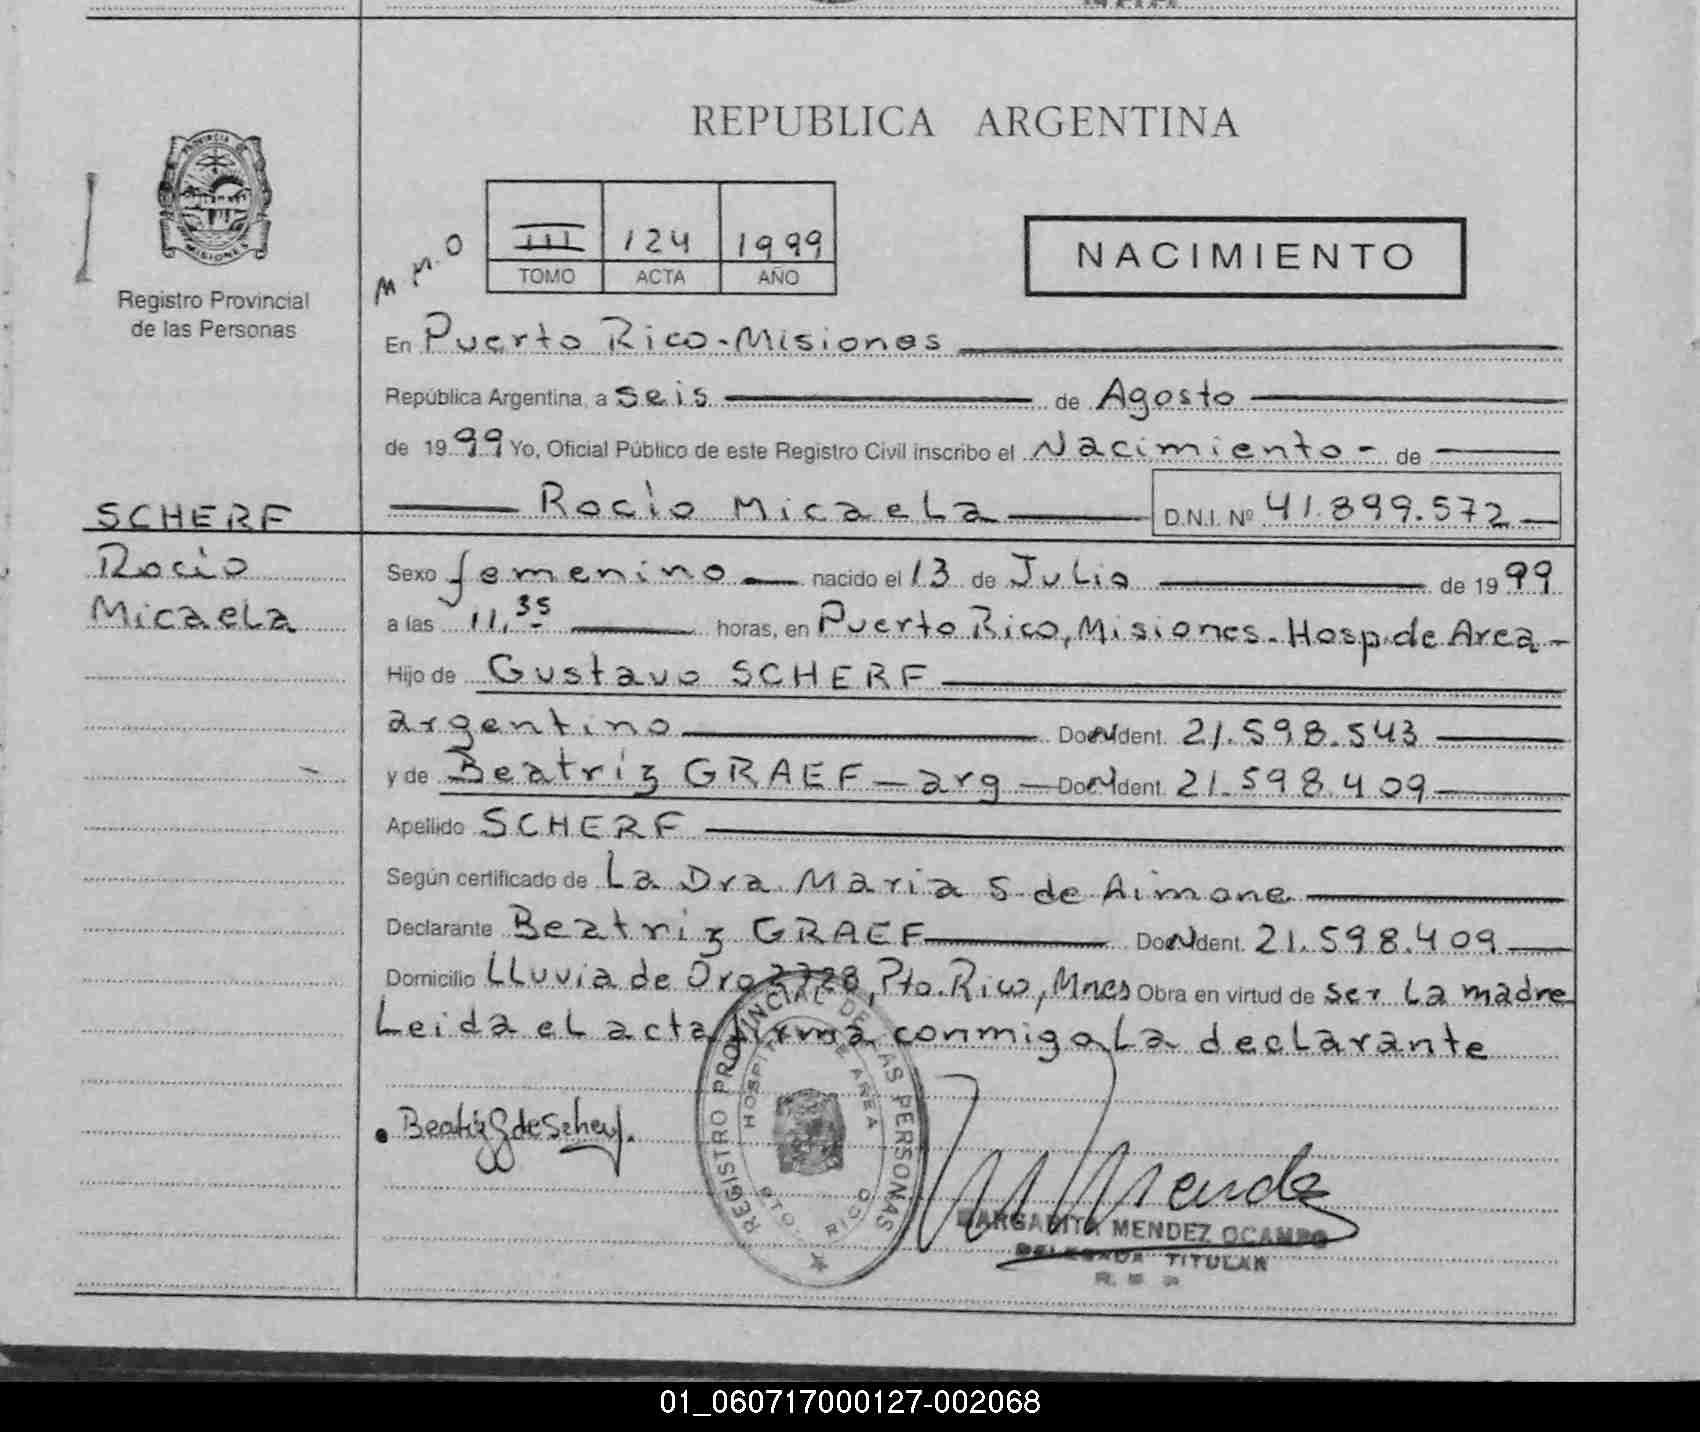 REPUBLICA ARGENTINA
PROVINCIA DE MISIONES
Registro Provincial
de las Personas
M.M.O
III 124 1999
TOMO ACTA AÑO
NACIMIENTO
En Puerto Rico-Misiones
República Argentina, a seis de Agosto
de 1999 Yo, Oficial Público de este Registro Civil inscribo el Nacimiento - de
Rocìo Micaela D.N.I. Nº 41.899.572
SCHERF
Rocio
Micaela
Sexo femenino nacido el 13 de Julio de 1999
a las 11,35 horas, en Puerto Rico, Misiones. Hosp. de Area -
Hijo de Gustavo SCHERF
argentino Doc. N Ident. 21.598.543
y de Beatriz GRAEF - arg - Doc. N Ident. 21.598.409
Apellido SCHERF
Según certificado de La Dra. Maria S. de Aimone
Declarante Beatriz GRAEF Doc. N Ident. 21.598.409
Domicilio LLuvia de Oro 2728, Pto. Rico, Mnes Obra en virtud de ser la madre
Leida el acta firma conmigo la declarante
REGISTRO PROVINCIAL DE LAS PERSONAS
HOSPITAL DE AREA
PTO. RICO
Beatriz G de Scherf.
M Mendez
MARGARITA MENDEZ OCAMPO
DELEGADA TITULAR
01_060717000127-002068